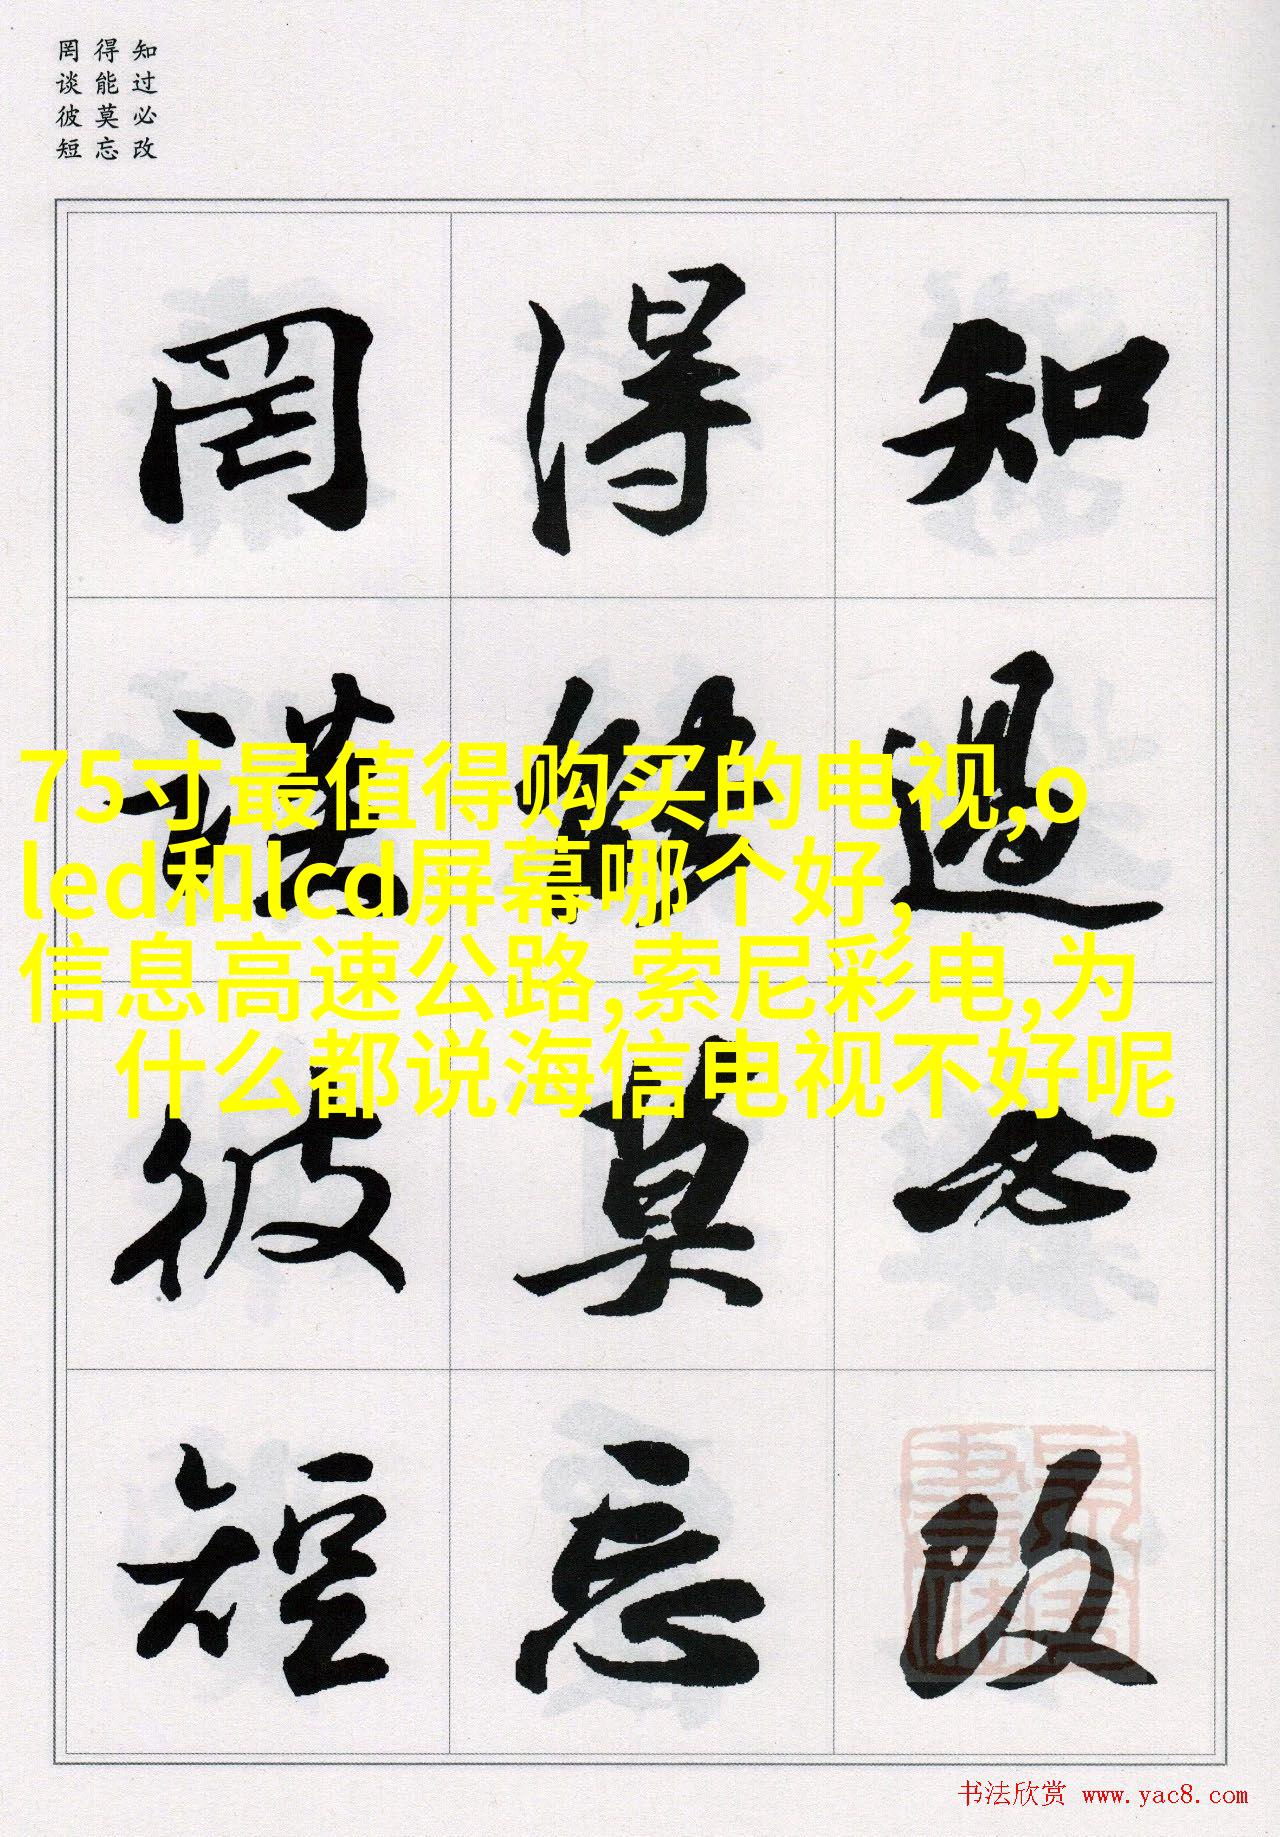 知过必改
得能莫忘
罔谈彼短
知過必改
得能莫忘
罔談彼短
75寸最值得购买的电视,o
led和lcd屏幕哪个好,
信息高速公路,索尼彩电,为
什么都说海信电视不好呢
书法欣赏 www.yac8.com